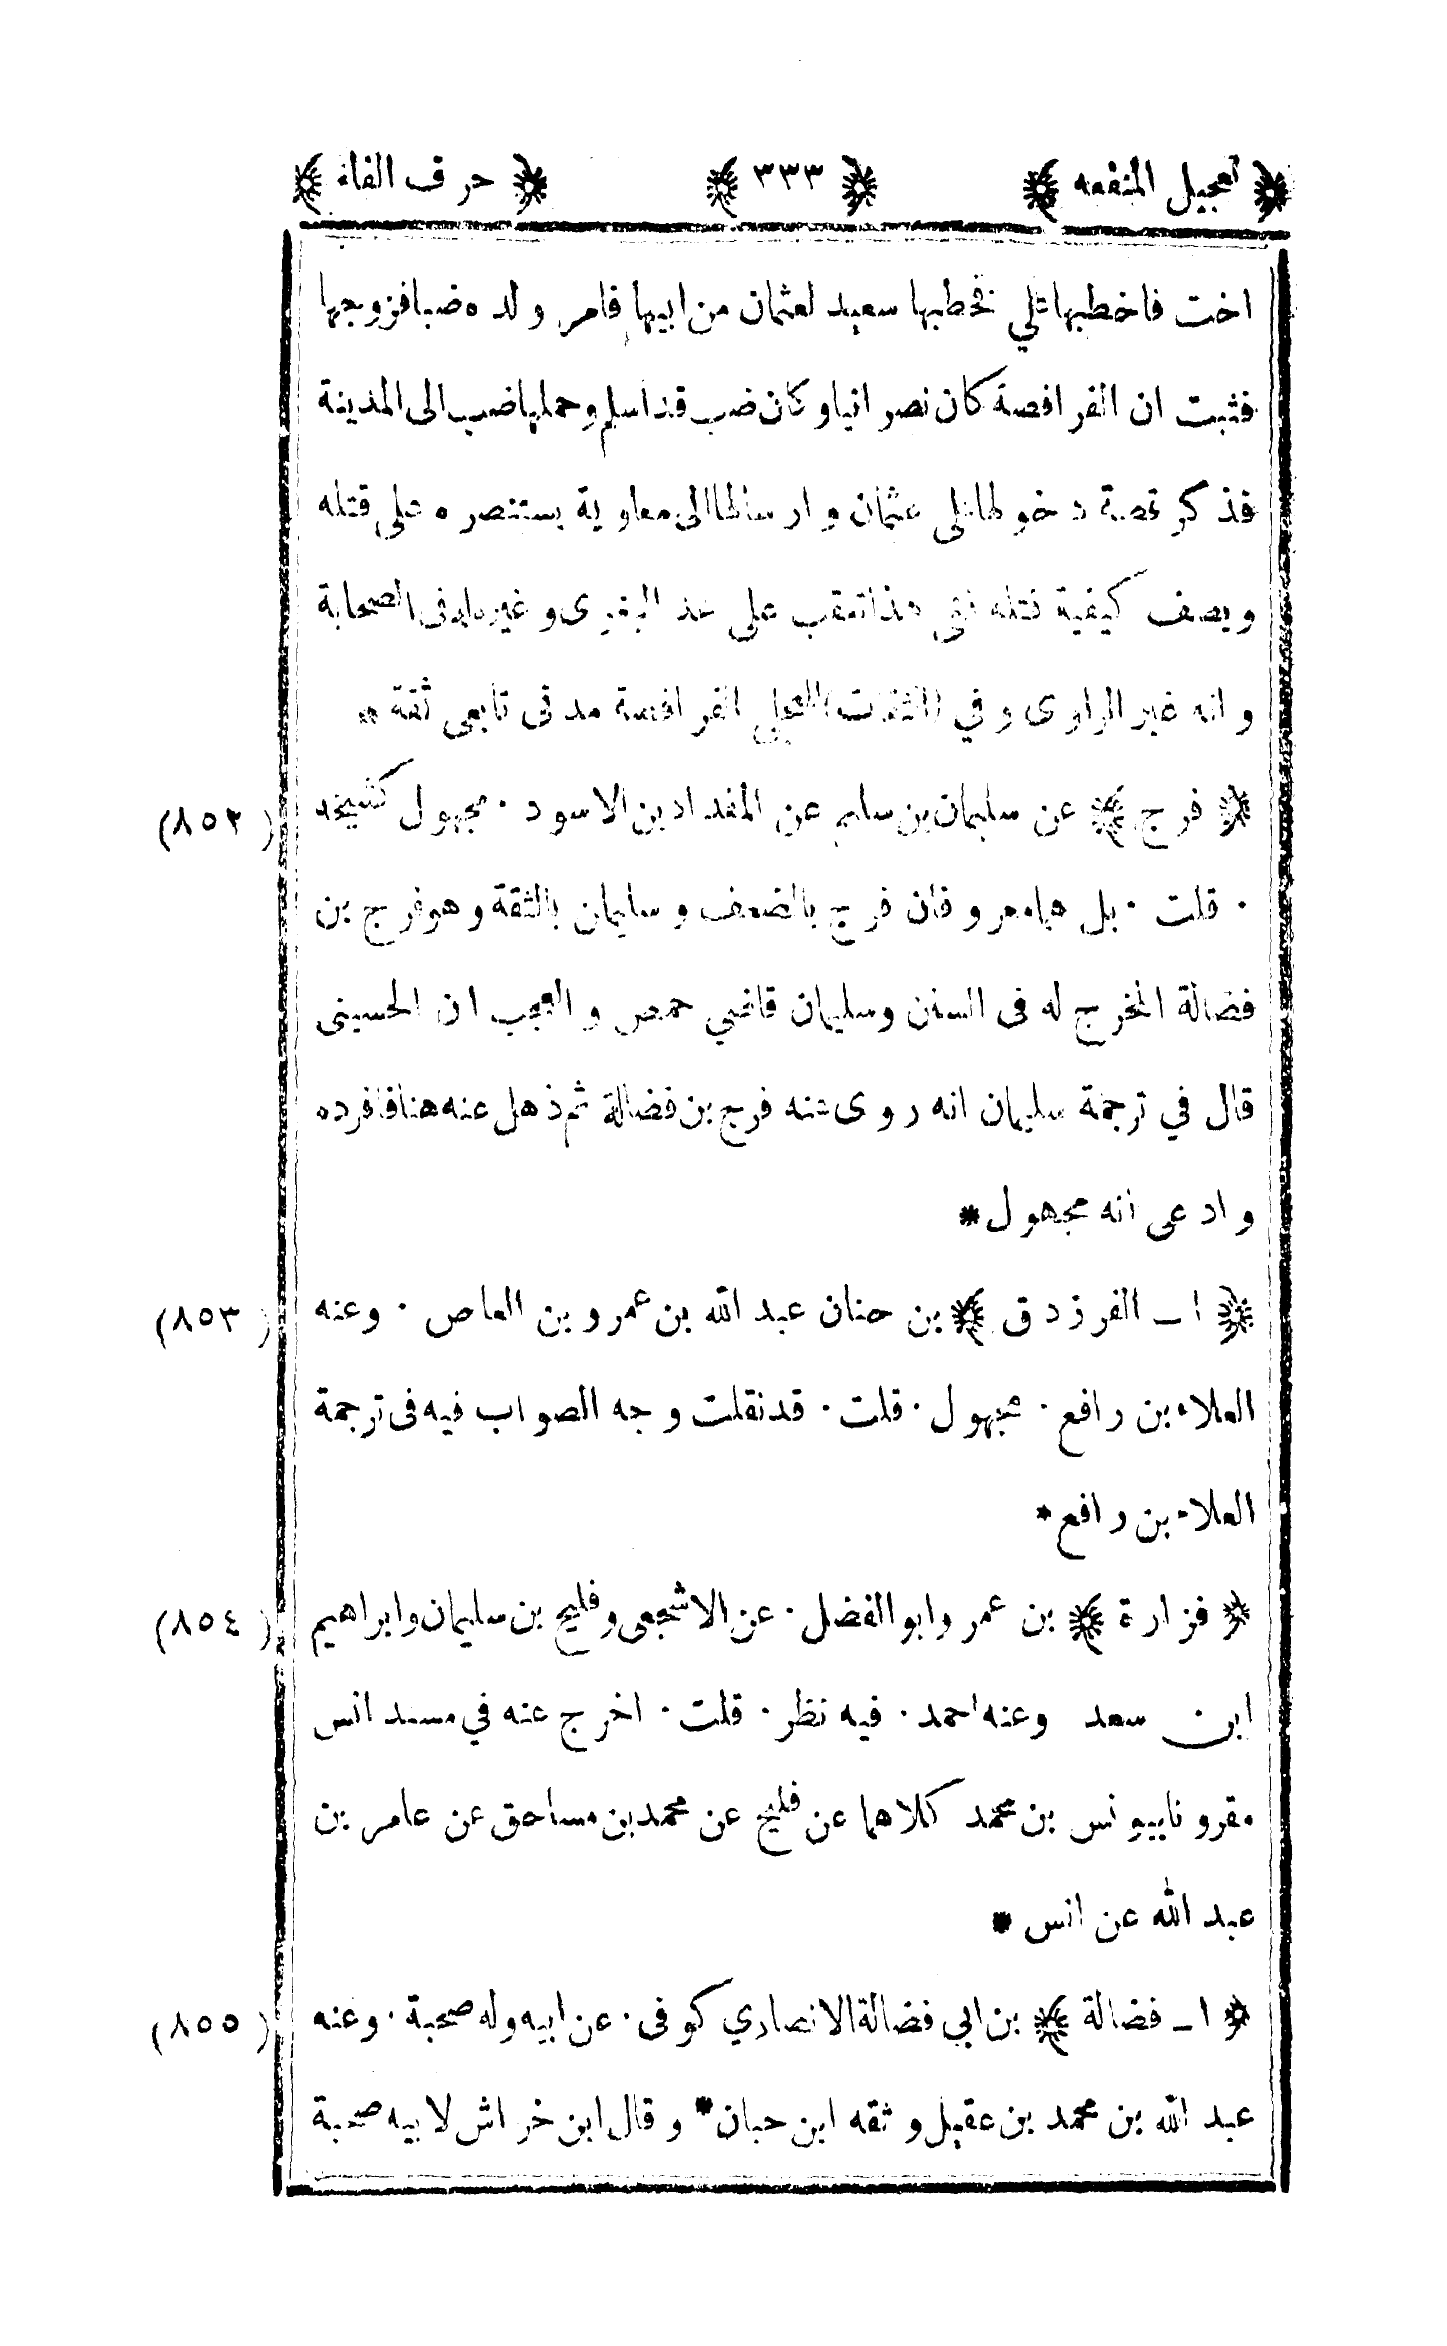 ﴿ تعجيل المنفعه ﴾ ﴿ ٣٣٣ ﴾ ﴿ حرف الفاء ﴾
اخت فاخطبها علي فخطبها سعيد لعثمان من ابيها فامر ولده ضبا فزوجها
فثبت ان الفرافصة كان نصرانيا وكان ضب قد اسلم وحملها ضب الى المدينة
فذكر قصة دخولها على عثمان وارسالها الى معاوية يستنصره على قتله
ويصف كيفية قتله ففى هذا تعقب على عد البغوى وغيره له فى الصحابة
وانه غير الراوى وفي (الثقات) للعجلي الفرافصة مدنى تابعى ثقة *
﴿ فرج ﴾ عن سليمان بن سليم عن المقداد بن الاسود ٠ مجهول كشيخه (٨٥٢)
٠ قلت ٠ بل هما معروفان فرج بالضعف وسليمان بالثقة وهو فرج بن
فضالة المخرج له فى السنن وسليمان قاضي حمص والعجب ان الحسينى
قال في ترجمة سليمان انه روى عنه فرج بن فضالة ثم ذهل عنه هنا فافرده
وادعى انه مجهول *
﴿ ا ـ الفرزدق ﴾ بن حنان عبد الله بن عمرو بن العاص ٠ وعنه (٨٥٣)
العلاء بن رافع ٠ مجهول ٠ قلت ٠ قد نقلت وجه الصواب فيه فى ترجمة
العلاء بن رافع *
﴿ فزارة ﴾ بن عمر وابو الفضل ٠ عن الاشجعى وفليح بن سليمان وابراهيم (٨٥٤)
ابن سعد وعنه احمد ٠ فيه نظر ٠ قلت ٠ اخرج عنه في مسند انس
مقرونا بيونس بن محمد كلاهما عن فليح عن محمد بن مساحق عن عامر بن
عبد الله عن انس *
﴿ ا ـ فضالة ﴾ بن ابي فضالة الانصاري كوفى ٠ عن ابيه وله صحبة ٠ وعنه (٨٥٥)
عبد الله بن محمد بن عقيل وثقه ابن حبان * وقال ابن خراش لابيه صحبة